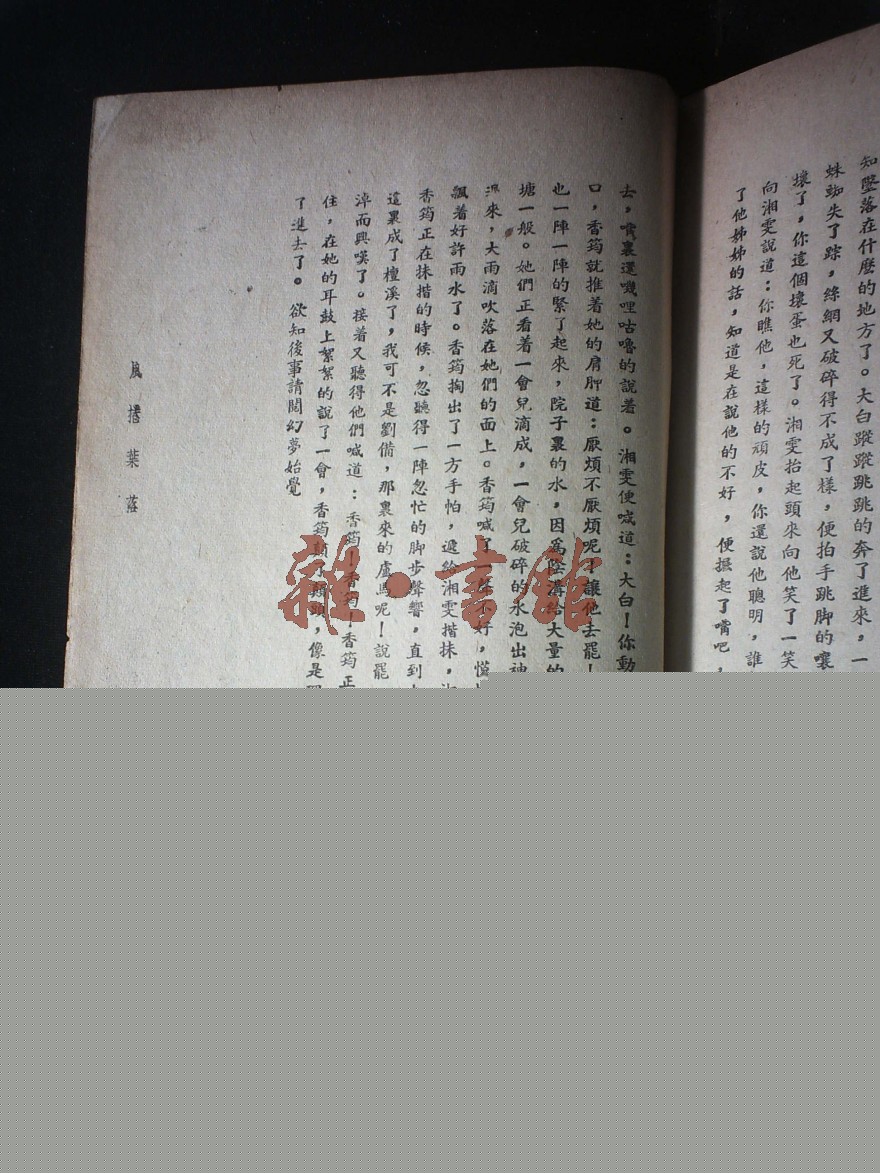 知墮落在什麽的地方了。大白蹤蹤跳跳的奔了進來，一
蛛蜘失了踪，絲網又破碎得不成了樣，便拍手跳脚的嚷
壞了，你這個壞蛋也死了。湘雯抬起頭來向他笑了一笑
向湘雯說道：你瞧他，這樣的頑皮，你還說他聰明，誰
了他姊姊的話，知道是在說他的不好，便掘起了嘴吧，
去，嘴裏還嘰哩咕嚕的說着。湘雯便喊道：大白！你動
口，香筠就推着她的肩胛道：厭煩不厭煩呢？讓他去罷！
也一陣一陣的緊了起來，院子裏的水，因爲陰溝給大量的
塘一般。她們正看着一會兒滴成，一會兒破碎的水泡出神
來，大雨滴吹落在她們的面上。香筠喊了一聲不好，慌
飄着好許雨水了。香筠掏出了一方手怕，遞給湘雯揩抹，
香筠正在抹揩的時候，忽聽得一陣忽忙的脚步聲響，直到
這裏成了檀溪了，我可不是劉備，那裏來的盧馬呢！說罷
淬而興嘆了。接着又聽得他們喊道：香筠！香筠！香筠正
住，在她的耳鼓上絮絮的說了一會，香筠顛了顛頭，像是
了進去了。欲知後事請閱幻夢始覺
風捲葉落
雜·書館